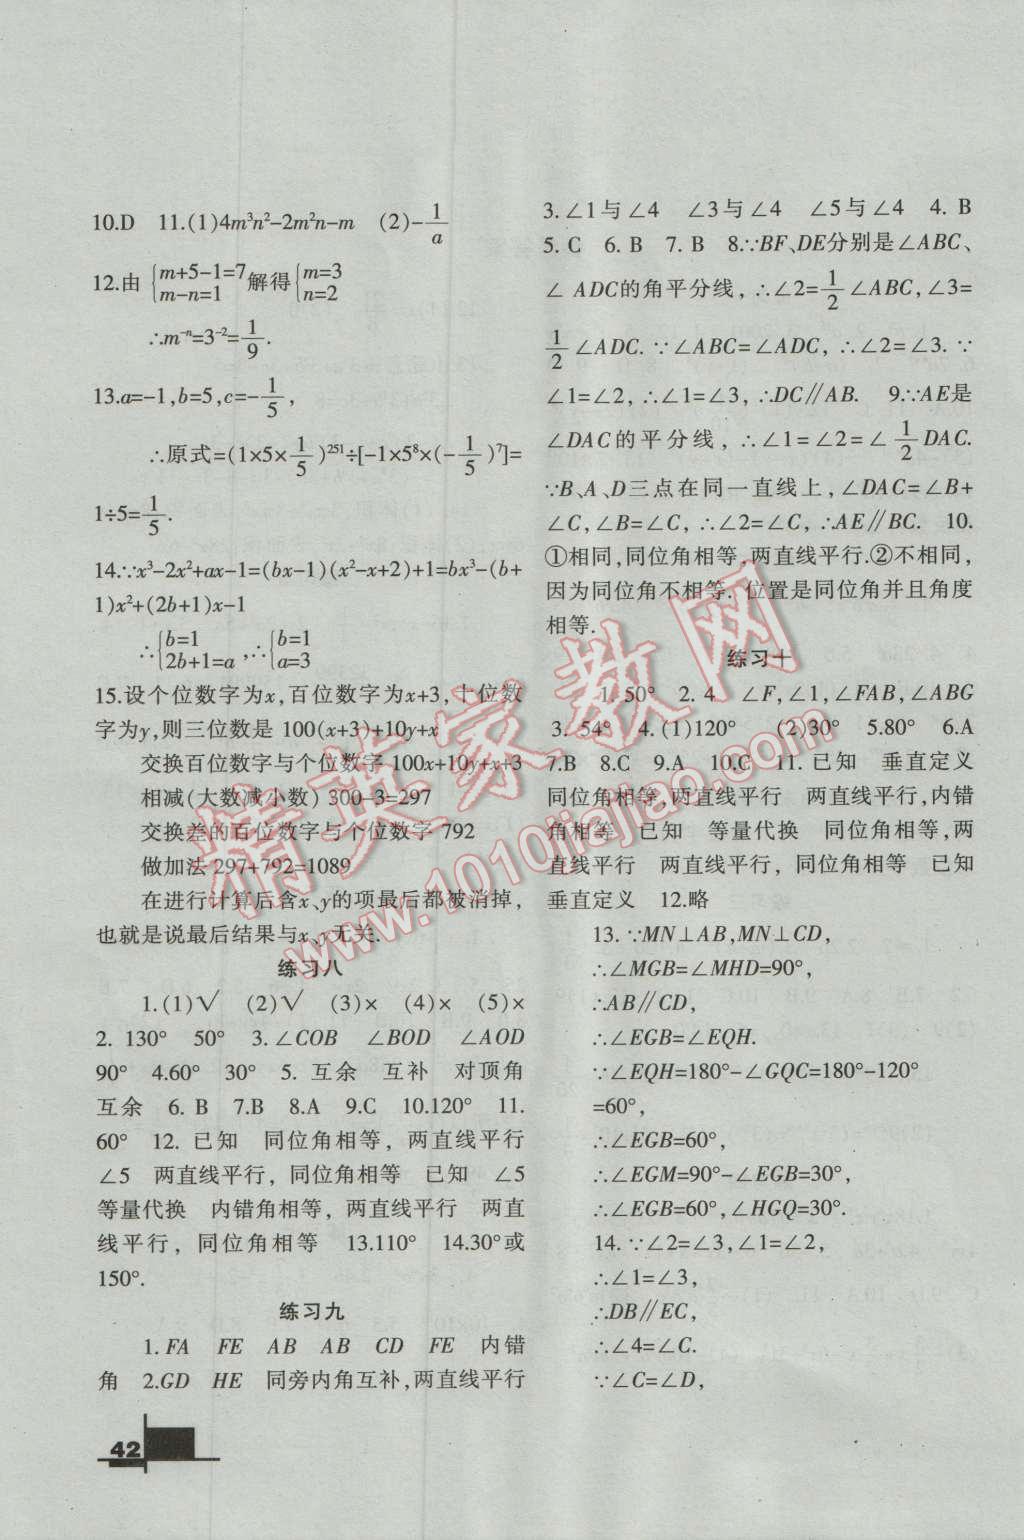 10.D 11.(1)4m³n²-2m²n-m (2)-1/a
12.由{m+5-1=7 m-n=1 解得{m=3 n=2
∴m⁻ⁿ=3⁻²=1/9.
13.a=-1,b=5,c=-1/5,
∴原式=(1×5×1/5)²⁵¹÷[-1×5⁸×(-1/5)⁷]=
1÷5=1/5.
14.∵x³-2x²+ax-1=(bx-1)(x²-x+2)+1=bx³-(b+
1)x²+(2b+1)x-1
∴{b=1 2b+1=a,∴{b=1 a=3
15.设个位数字为x,百位数字为x+3,十位数
字为y,则三位数是 100(x+3)+10y+x
交换百位数字与个位数字100x+10y+x+3
相减(大数减小数) 300-3=297
交换差的百位数字与个位数字 792
做加法 297+792=1089
在进行计算后含x、y的项最后都被消掉,
也就是说最后结果与x、y无关.
练习八
1.(1)√ (2)√ (3)× (4)× (5)×
2. 130° 50° 3.∠COB ∠BOD ∠AOD
90° 4.60° 30° 5. 互余 互补 对顶角
互余 6. B 7.B 8.A 9.C 10.120° 11.
60° 12. 已知 同位角相等, 两直线平行
∠5 两直线平行, 同位角相等 已知 ∠5
等量代换 内错角相等, 两直线平行 两直
线平行, 同位角相等 13.110° 14.30°或
150°.
练习九
1.FA FE AB AB CD FE 内错
角 2.GD HE 同旁内角互补,两直线平行
42
3.∠1与∠4 ∠3与∠4 ∠5与∠4 4. B
5. C 6. B 7. B 8.∵BF、DE分别是∠ABC、
∠ ADC的角平分线, ∴∠2=1/2∠ABC,∠3=
1/2∠ADC. ∵∠ABC=∠ADC, ∴∠2=∠3. ∵
∠1=∠2, ∴∠1=∠3, ∴DC∥AB. 9.∵AE是
∠DAC的平分线, ∴∠1=∠2=∠1/2DAC.
∵B、A、D三点在同一直线上,∠DAC=∠B+
∠C,∠B=∠C, ∴∠2=∠C, ∴AE∥BC. 10.
①相同,同位角相等,两直线平行.②不相同,
因为同位角不相等. 位置是同位角并且角度
相等.
练习十
1.50° 2. 4 ∠F,∠1,∠FAB,∠ABG
3. 54° 4.(1)120° (2)30° 5.80° 6.A
7.B 8.C 9.A 10.C 11. 已知 垂直定义
同位角相等,两直线平行 两直线平行,内错
角相等 已知 等量代换 同位角相等,两
直线平行 两直线平行, 同位角相等 已知
垂直定义 12.略
13. ∵MN⊥AB,MN⊥CD,
∴∠MGB=∠MHD=90°,
∴AB∥CD,
∴∠EGB=∠EQH.
∵∠EQH=180°-∠GQC=180°-120°
=60°,
∴∠EGB=60°,
∴∠EGM=90°-∠EGB=30°,
∴∠EGB=60°,∠HGQ=30°.
14. ∵∠2=∠3,∠1=∠2,
∴∠1=∠3,
∴DB∥EC,
∴∠4=∠C.
∵∠C=∠D,
精英家教网
www.1010jiajiao.com